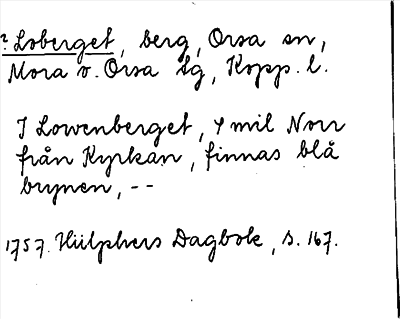 ? Loberget, berg, Orsa sn,
Mora o. Orsa tg, Kopp. l.
I Lowenberget, 4 mil Norr
från Kyrkan, finnas blå
brynen, --
1757. Hülphers Dagbok, s. 167.